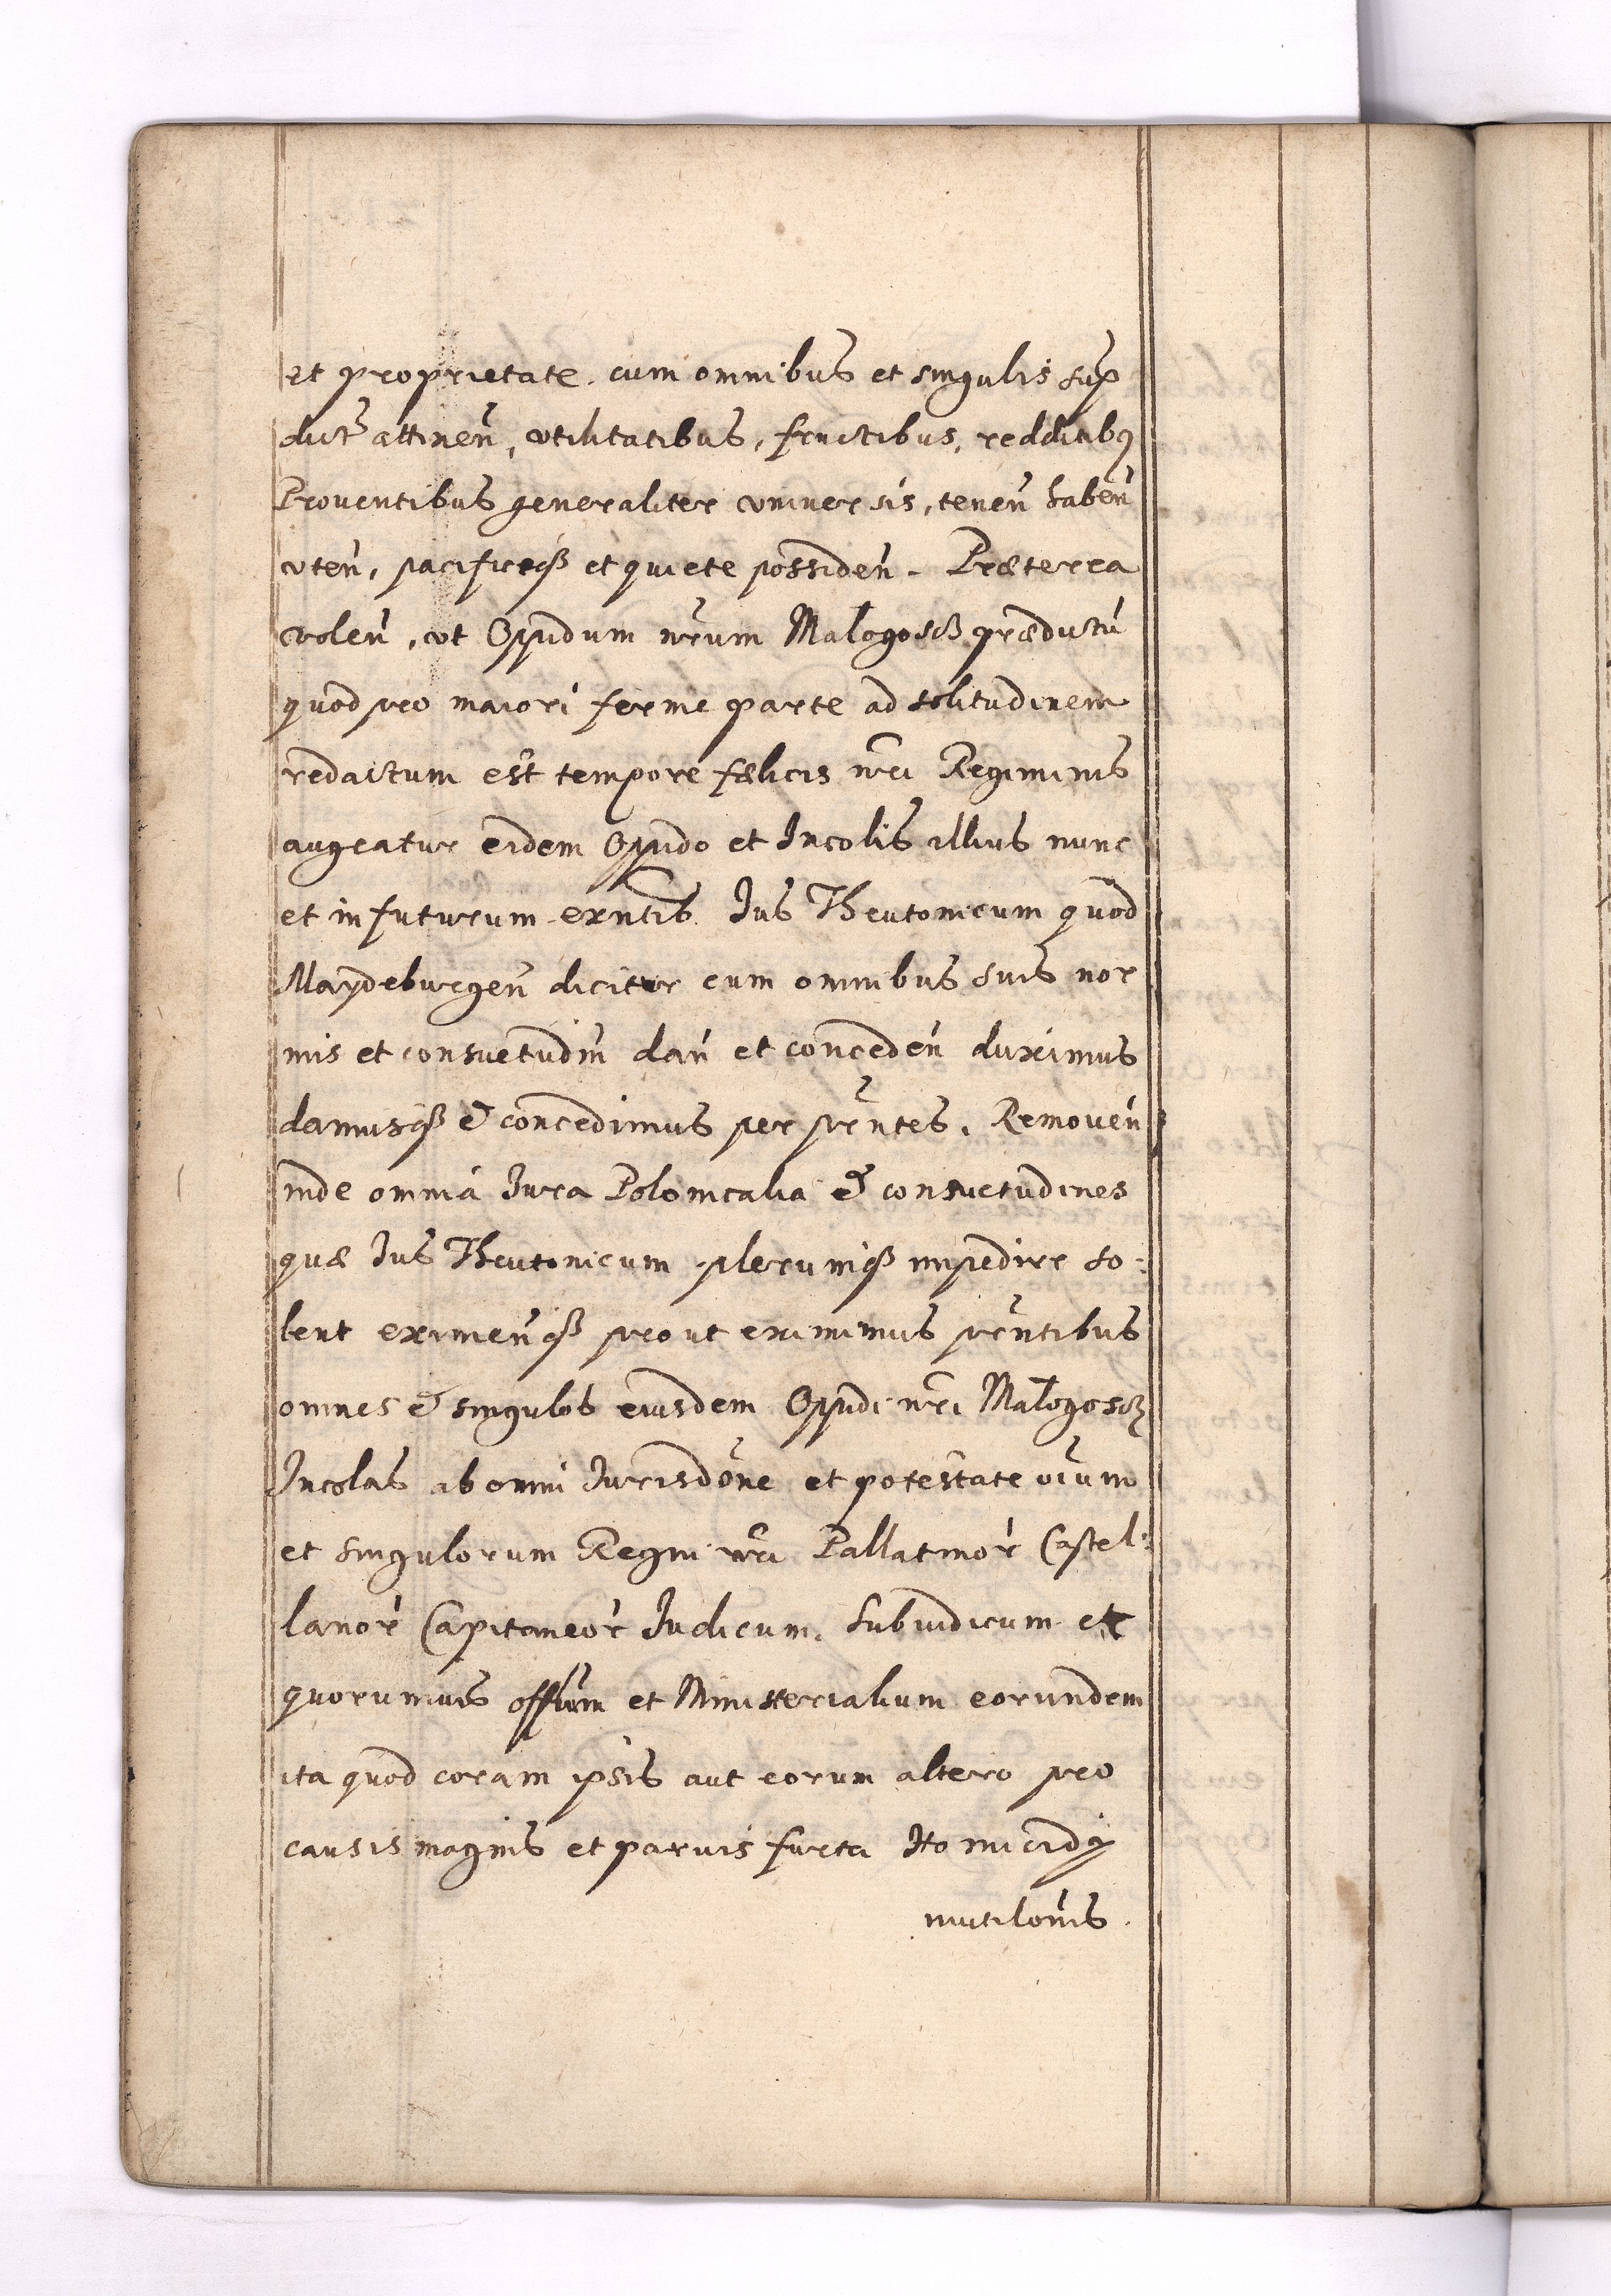 et proprietate. cum omnibus et singulis sup
dict attinen̄, vtilitatibus, fructibus, redditibꝰ
Proventibus generaliter vniversis, tenen̄ haben̄
vten̄, pacificeqꝫ et quiete possiden̄. Præterea
volen̄, vt Oppidum nr̄um Małogoscz prædictū
quod pro maiori ferme parte ad solitudinem
redactum est tempore fælicis nr̄i Regiminis
augeatur eidem Oppido et Incolis illius nunc
et in futurum exn̄tib. Jus Theutonicum quod
Maydeburgen̄ dicitur cum omnibus suis nor
mis et consuetudin̄ dan̄ et conceden̄ duximus
damusqꝫ & concedimus per pr̄ntes. Removen̄
inde omnia Jura Polonicalia & consuetudines
quæ Jus Theutonicum plerumqꝫ impedire so:
lent eximen̄qꝫ prout eximimus pr̄ntibus
omnes & singulos eiusdem Oppidi nr̄i Małogoscz
Incolas ab omni Jurisdōne et potestate oium̄
et singulorum Regni nr̄i Pallatinor̄ Castel:
lanor̄ Capitaneor̄ Judicum, Subiudicum et
quorumvis offlium̄ et Ministerialium eorundem
ita quod coram ipsis aut eorum altero pro
causis magnis et parvis furti Homicidij
mutilōnis.